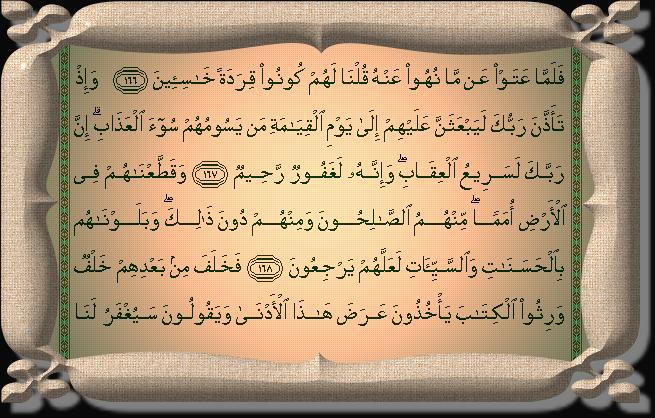 فَلَمَّا عَتَوْا۟ عَن مَّا نُهُوا۟ عَنْهُ قُلْنَا لَهُمْ كُونُوا۟ قِرَدَةً خَٰسِـِٔينَ ١٦٦ وَإِذْ
تَأَذَّنَ رَبُّكَ لَيَبْعَثَنَّ عَلَيْهِمْ إِلَىٰ يَوْمِ ٱلْقِيَٰمَةِ مَن يَسُومُهُمْ سُوٓءَ ٱلْعَذَابِ ۗ إِنَّ
رَبَّكَ لَسَرِيعُ ٱلْعِقَابِ ۖ وَإِنَّهُۥ لَغَفُورٌ رَّحِيمٌ ١٦٧ وَقَطَّعْنَٰهُمْ فِى
ٱلْأَرْضِ أُمَمًا ۖ مِّنْهُمُ ٱلصَّٰلِحُونَ وَمِنْهُمْ دُونَ ذَٰلِكَ ۖ وَبَلَوْنَٰهُم
بِٱلْحَسَنَٰتِ وَٱلسَّيِّـَٔاتِ لَعَلَّهُمْ يَرْجِعُونَ ١٦٨ فَخَلَفَ مِنۢ بَعْدِهِمْ خَلْفٌ
وَرِثُوا۟ ٱلْكِتَٰبَ يَأْخُذُونَ عَرَضَ هَٰذَا ٱلْأَدْنَىٰ وَيَقُولُونَ سَيُغْفَرُ لَنَا